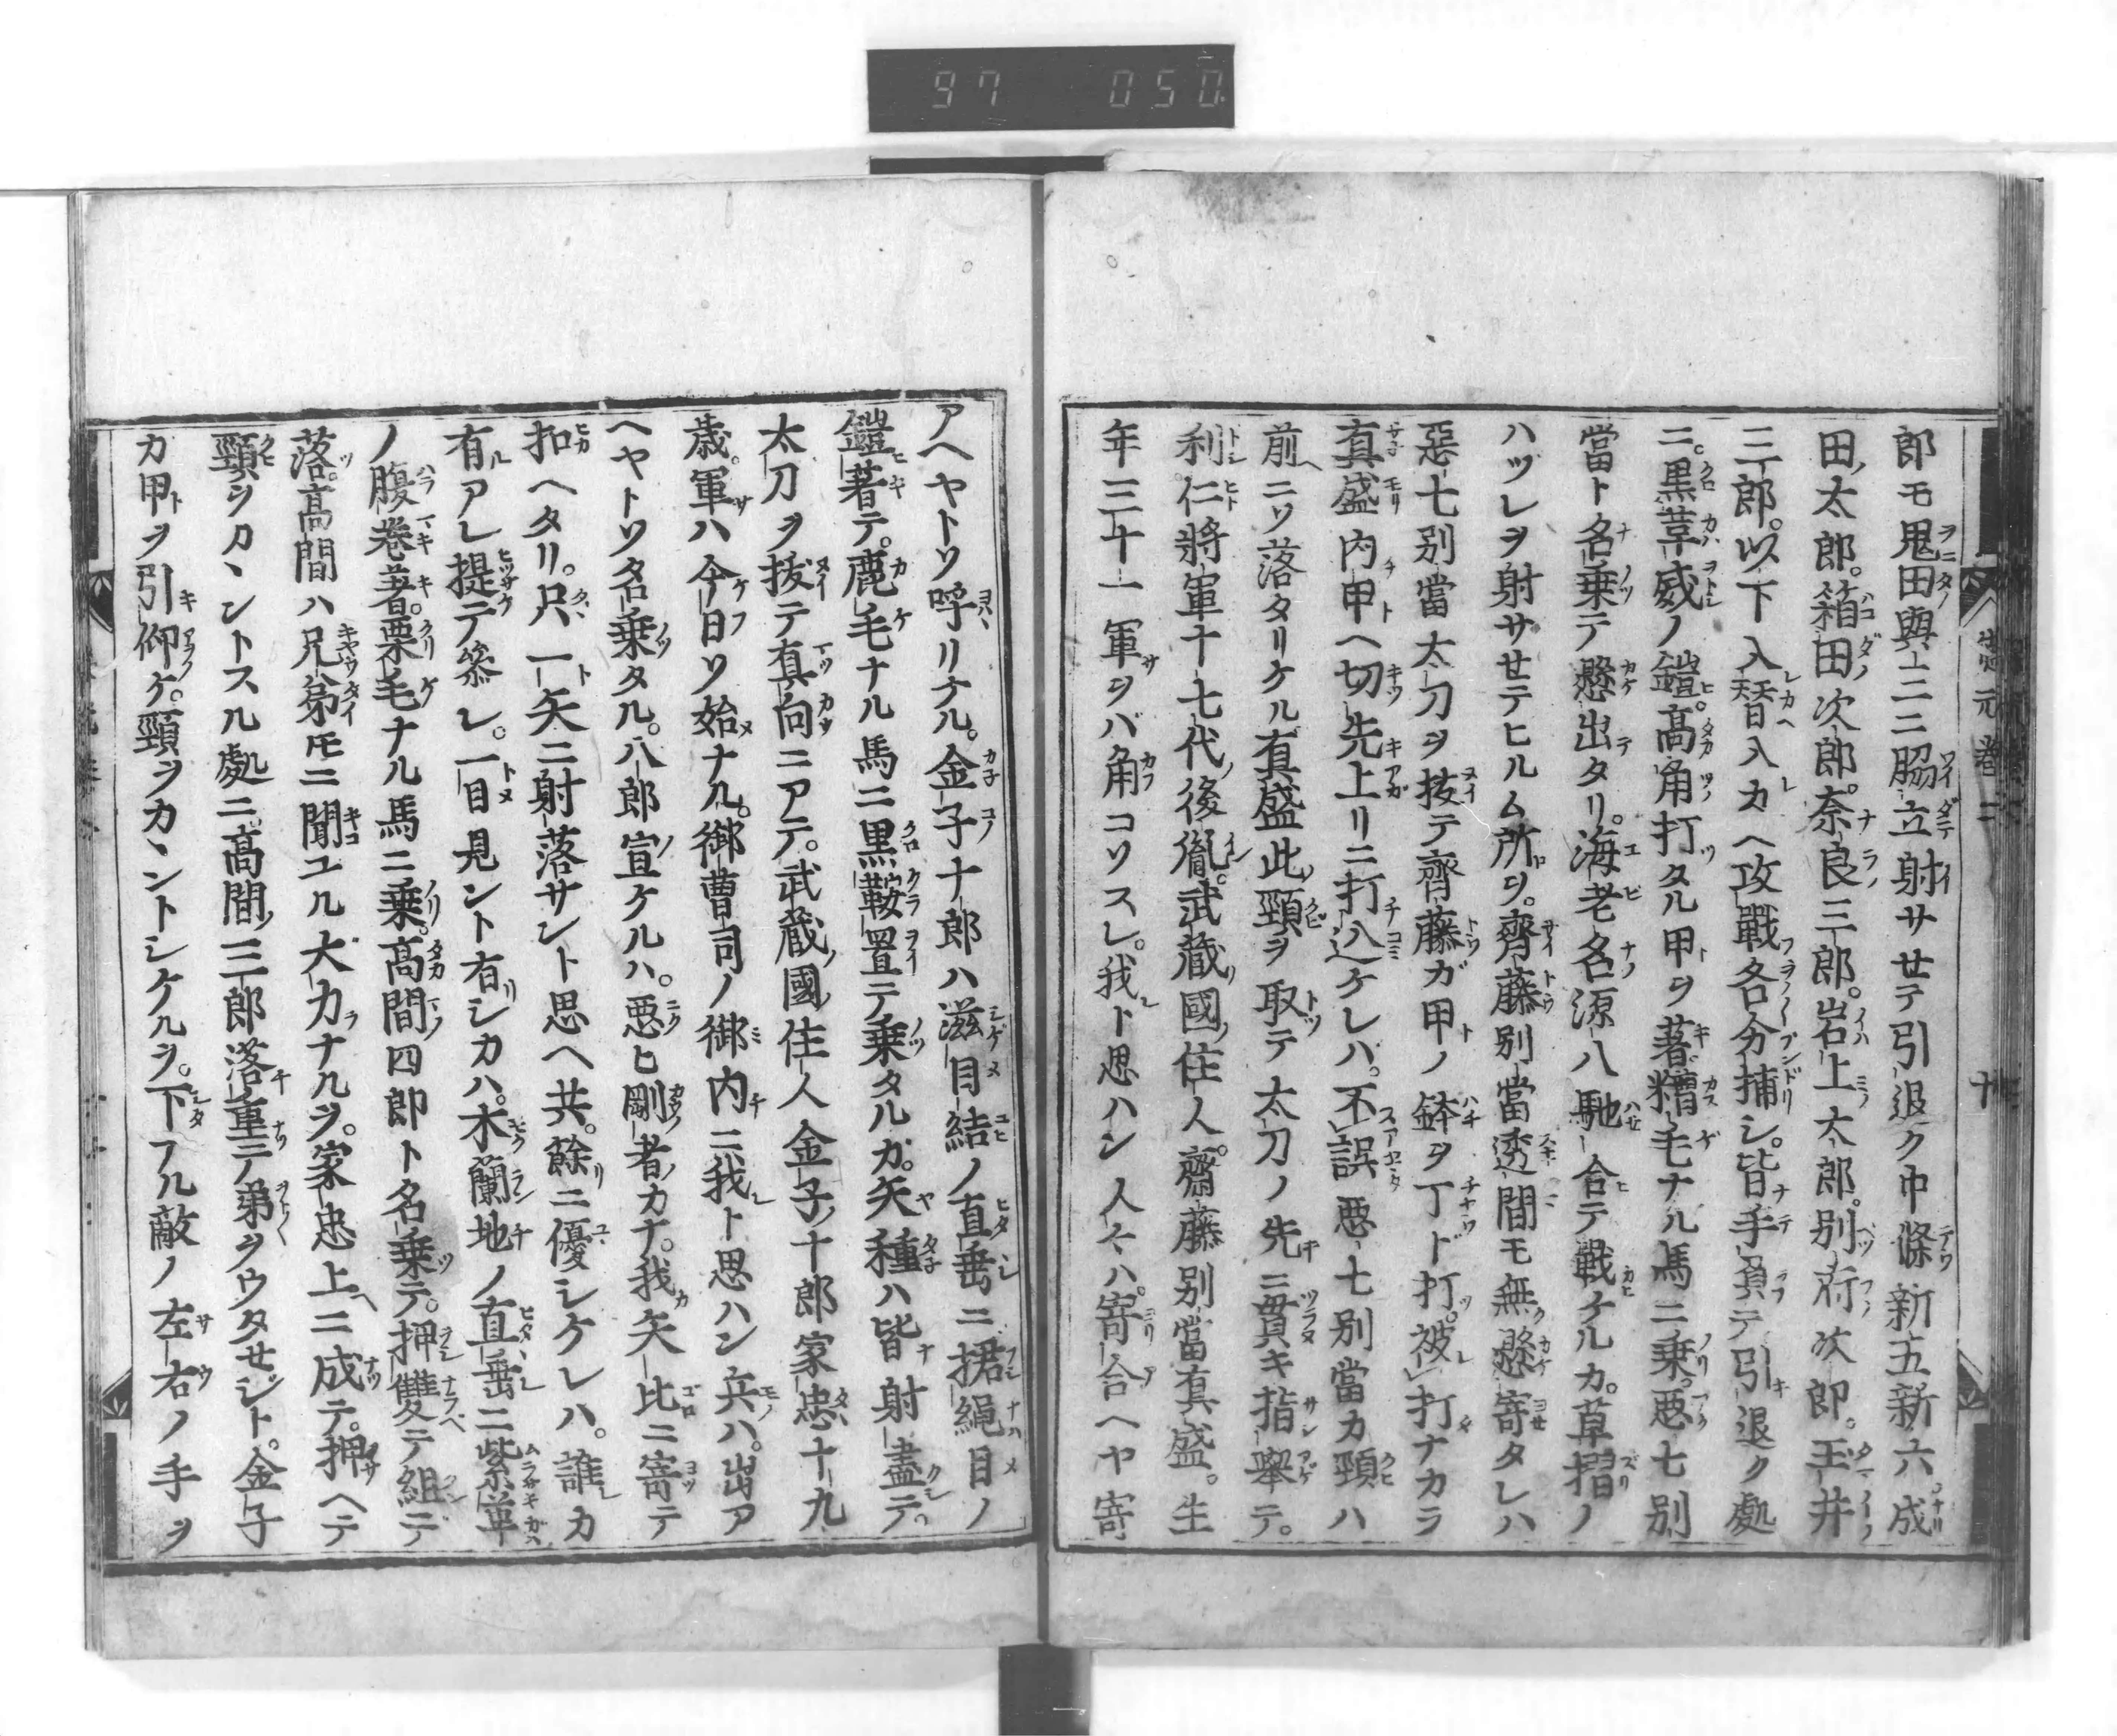 97 050
郎モ鬼田與三ニ脇立射サセテ引退ク中條新五新六成
田ノ太郎。箱田次郎。奈良三郎。岩上太郎。別府次郎。玉井
三郎。以下入替入カヘ攻戰各分捕シ。皆手負テ引退ク處
ニ。黒葦威ノ鎧。高角打タル甲ヲ著糟毛ナル馬ニ乗。悪七別
當ト名乗テ懸出タリ。海老名源八馳合テ戰ケルカ。草摺ノ
ハヅレヲ射サセテヒルム所ヲ。齊藤別當透間モ無懸寄タレハ
惡七別當太刀ヲ抜テ齊藤ガ甲ノ鉢ヲ丁ド打。被打ナカラ
真盛内甲ヘ切先上リニ打込ケレハ。不誤悪七別當カ頸ハ
前ニソ落タリケル真盛此頸ヲ取テ太刀ノ先ニ貫キ指擧テ。
利仁將軍十七代後胤。武藏國ノ住人。齋藤別當真盛。生
年三十一軍ヲバ角コソスレ。我ト思ハン人々ハ。寄合ヘヤ寄
アヘヤトソ呼リケル。金子十郎ハ滋目結ノ直垂ニ捃縄目ノ
鎧著テ。鹿毛ナル馬ニ黒鞍置テ乗タルガ。矢種ハ皆射盡テ。
太刀ヲ抜テ真向ニアテ。武藏ノ國ノ住人金子ノ十郎家忠十九
歳。軍ハ今日ソ始ナル。御曹司ノ御内ニ我ト思ハン兵ハ。出ア
ヘヤトソ名乗タル。八郎宣ケルハ。悪ヒ剛者カナ。我矢比ニ寄テ
扣ヘタリ。只一矢ニ射落サント思ヘ共。餘ニ優シケレハ。誰カ
有アレ提テ參レ。一目見ント有シカハ。木蘭地ノ直垂ニ紫革
ノ腹巻著。栗毛ナル馬ニ乗。高間四郎ト名乗テ。押雙テ組デ
落。高間ハ兄弟モニ聞ユル大カナルヲ。家忠上ニ成テ。押ヘテ
頸ヲカヽントスル處ニ。高間ノ三郎落重テ弟ヲウタセジト。金子
カ甲ヲ引仰ケ。頸ヲカヽントシケルヲ。下フル敵ノ左右ノ手ヲ